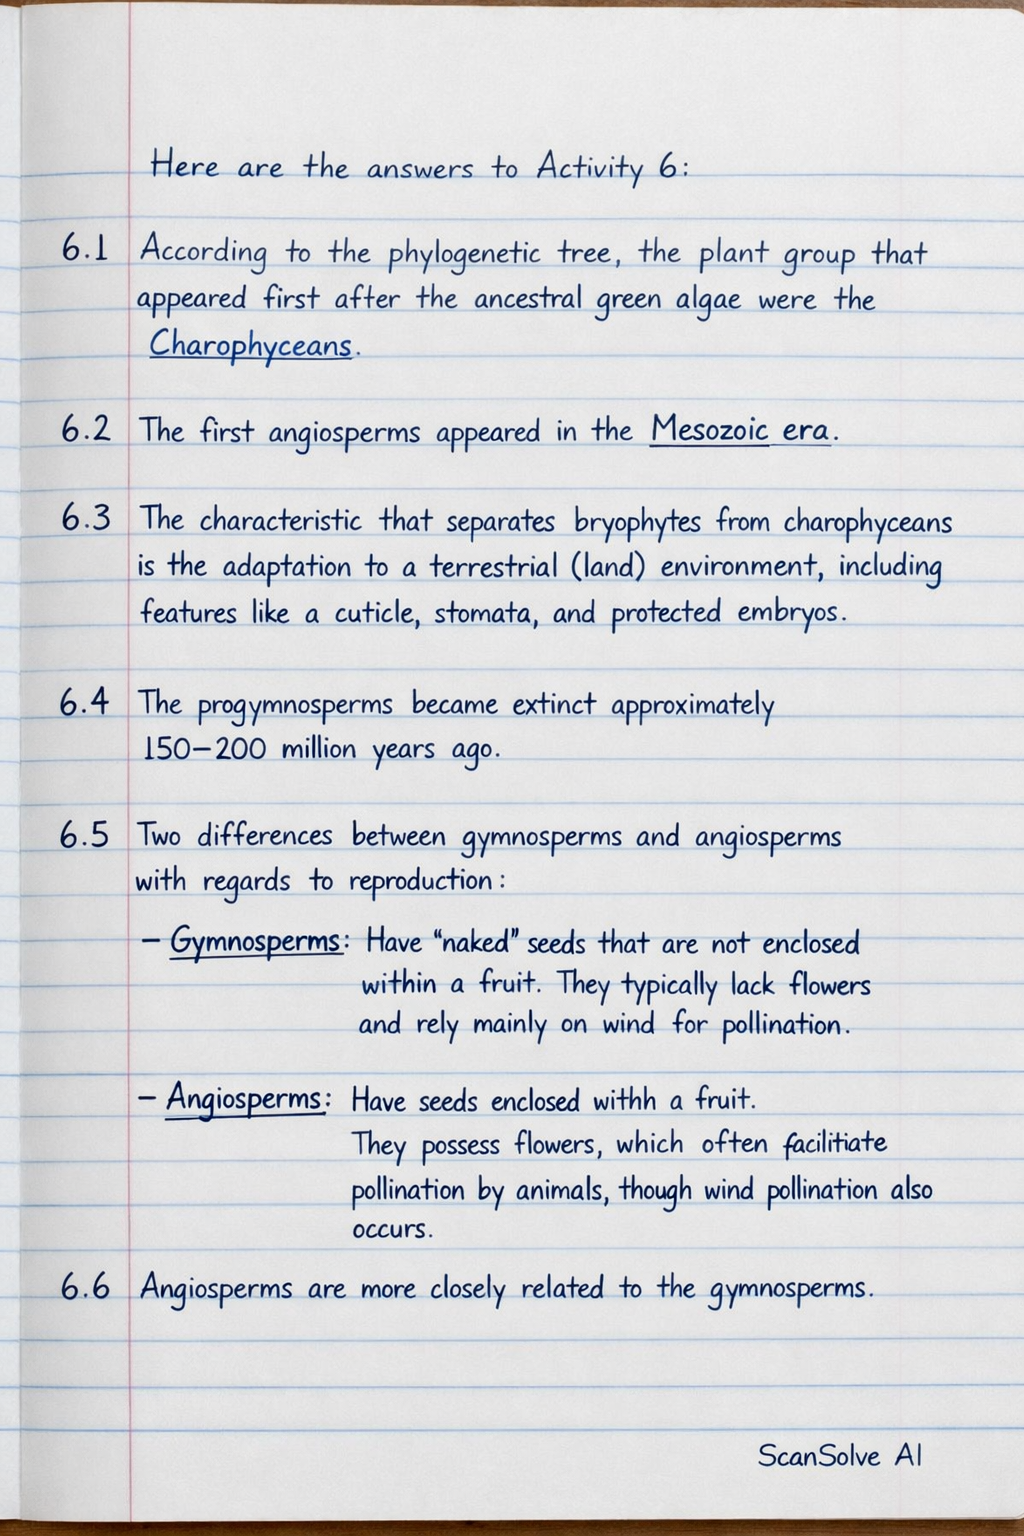 Here are the answers to Activity 6:
6.1 According to the phylogenetic tree, the plant group that
appeared first after the ancestral green algae were the
Charophyceans.
6.2 The first angiosperms appeared in the Mesozoic era.
6.3 The characteristic that separates bryophytes from charophyceans
is the adaptation to a terrestrial (land) environment, including
features like a cuticle, stomata, and protected embryos.
6.4 The progymnosperms became extinct approximately
150–200 million years ago.
6.5 Two differences between gymnosperms and angiosperms
with regards to reproduction:
– Gymnosperms: Have “naked” seeds that are not enclosed
within a fruit. They typically lack flowers
and rely mainly on wind for pollination.
– Angiosperms: Have seeds enclosed withh a fruit.
They possess flowers, which often facilitiate
pollination by animals, though wind pollination also
occurs.
6.6 Angiosperms are more closely related to the gymnosperms.
ScanSolve AI